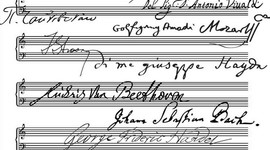 Del Sig. D. Antonio Vivaldi
П. Чайковский
Wolfgang Amadè Mozart
di me giuseppe Haydn
Ludwig Van Beethoven
Johann Sebastian Bach.
George Frideric Handel